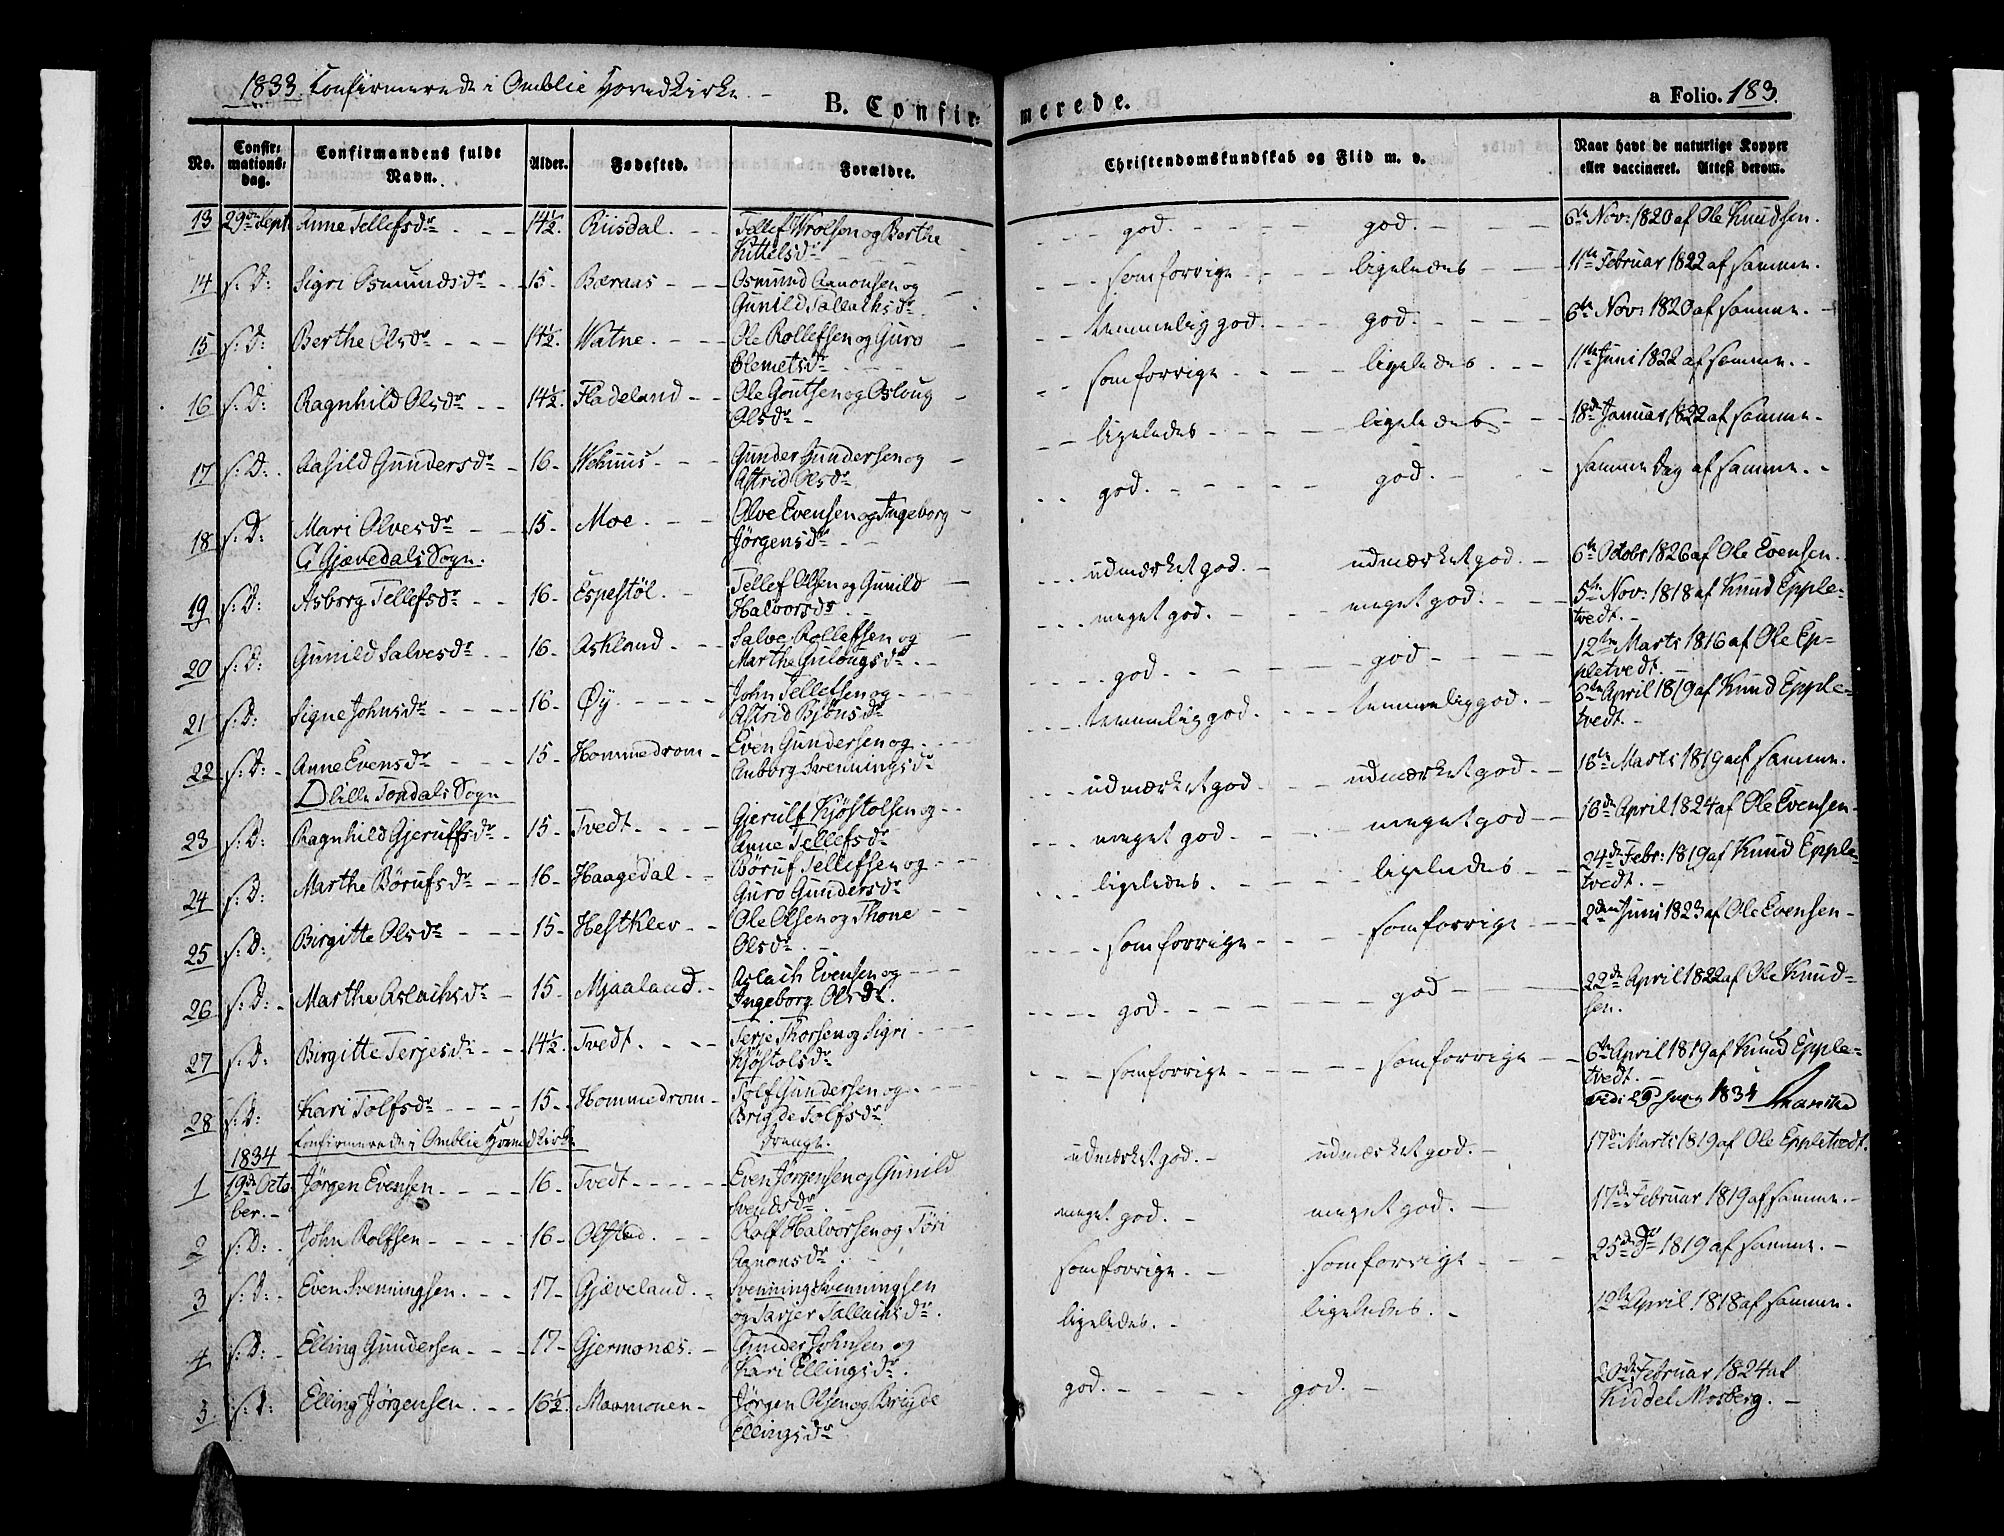 1833. Confirmerede i Omblie Hovedkirke. -
B. Confirmerede.
a Folio. 183.
No.
Confirmationsdag.
Confirmandens fulde Navn.
Alder.
Fødested.
Forældre.
Christendomskundskab og Flid m. v.
Naar havt de naturlige Kopper eller vaccineret. Attest derom.
13 29de Sept. Anne Tellefsdr 14½. Riisdal. Tellef Wrolsen og Berthe Kittelsdr god. god. 6te Nov: 1820 af Ole Knudsen.
14 s: D: Sigri Osmundsdr 15. Bæraas Osmund Aanonsen og Gunild Tallachsdr. som forrige ligeledes 11te Februar 1822 af samme.
15 s: D: Berthe Olsdr 14½. Watne. Ole Rollefsen og Guro Clemetsdr temmelig god. god. 6te Nov: 1820 af samme.
16 s: D: Ragnhild Olsdr 14½. Fladeland Ole Goutsen og Osloug Olsdr som forrige ligeledes. 11te Juni 1822 af samme.
17 s: D: Aasild Gundersdr 16. Wehuus. Gunder Gundersen og Astrid Olsdr ligeledes ligeledes 18de Januar 1822 af samme.
18 s: D: Mari Olvesdr 15. Moe. Olve Evensen og Ingeborg Jørgensdr god. god. samme Dag af samme.
C Gjævedals Sogn.
19 s: D: Asborg Tellefsdr 16. Espestøl. Tellef Olsen og Gunild Halvorsdr udmærket god. udmærket god. 6te Octobr 1826 af Ole Evensen.
20 s: D: Gunild Salvesdr 16. Askland Salve Rollefsen og Marthe Gulougsdr. meget god. meget god. 5te Nov: 1818 af Knud Eppletvedt.
21 s: D: Signe Johnsdr 16. Øy. John Tellefsen og Astrid Bjønsdr god. god 12te Marts 1816 af Ole Eppletvedt.
22 s: D: Anne Evensdr 15. Hommedrom Even Gundersen og Anborg Svenningsdr temmelig god. temmelig god. 6te April 1819 af Knud Eppletvedt.
D lille Tovdals Sogn
23 s: D: Ragnhild Gjerulfsdr 15. Tvedt. Gjerulf Kjøstolsen og Anne Tellefsdr udmærket god udmærket god. 16te Marts 1819 af samme.
24 s: D: Marthe Børufsdr 16. Haagedal. Børuf Tellefsen og Guro Gundersdr meget god. meget god 16de April 1824 af Ole Evensen.
25 s: D: Birgitte Olsdr 15. Hestklev Ole Olsen og Thone Olsdr. ligeledes. ligeledes 24de Febr: 1819 af Knud Eppletvedt.
26 s: D: Marthe Aslachsdr 15. Mjaaland. Aslach Evensen og Ingeborg Olsdr. som forrige som forrige 2den Juni 1823 af Ole Evensen
27 s: D: Birgitte Terjesdr 14½. Tvedt. Terje Thorsen og Sigri Kjøstolsdr god. god 22de April 1822 af Ole Knudsen.
28 s: D: Kari Tolfsdr 15. Hommedrom Tolf Gundersen og Brigde Tolfsdr som forrige som forrige 6te April 1819 af Knud Eppletvedt.
vidi 1834
1834 Confirmerede i Omblie Hovedkirke Drenge.
1 19de October. Jørgen Evensen 16. Tvedt Even Jørgensen og Gunild Svendsdr. udmærket god. udmærket god. 17de Marts 1819 af Ole Eppletvedt.
2 s: D: John Rolfsen 16. Olstad. Rolf Halvorsen og Tori Aanonsdr. meget god. meget god. 17de Februar 1819 af samme.
3 s: D: Even Svenningsen. 17. Gjæveland. Svenning Svenningsen og Tarjer Tallachsdr. som forrige. som forrige 25de Dr 1819 af samme.
4 s: D: Elling Gundersen 17. Gjermonæs. Gunder Johnsen og Kari Ellingsdr. ligeledes. ligeledes. 12te April 1818 af samme.
5. s: D: Elling Jørgensen. 16½. Mavmonen Jørgen Olsen og Brigde Ellingsdr god. god. 20de Februar 1824 af Kiddel Mosberg.